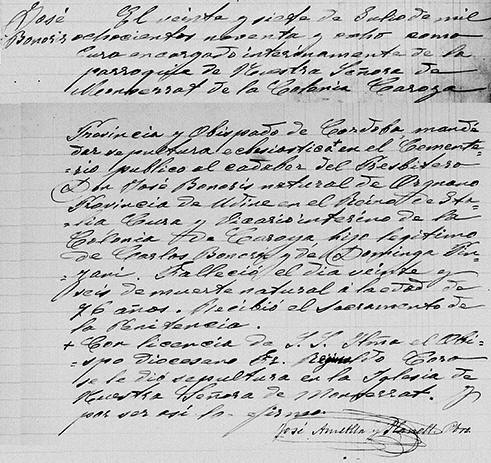 José
Bonoris
El veinte y siete de Julio de mil
ochocientos noventa y ocho como
Cura encargado interinamente de la
parroquia de Nuestra Señora de
Monserrat de la Colonia Caroya
Provincia y Obispado de Cordoba, mandé
dar sepultura eclesiastica en el Cemente-
rio publico al cadaber del Presbitero
Don José Bonoris natural de
Provincia de Udine en el Reino de Ita-
lia Cura y Vicario interino de la
Colonia de Caroya, hijo legitimo
de Carlos Bonoris y de Dominga
Falleció el dia veinte y
seis de muerte natural a la edad de
76 años. Recibió el sacramento de
la Penitencia.
+ Con licencia de S. S. Ilma el Obi-
spo diocesano Fr. Toro
se le dió sepultura en la Iglesia de
Nuestra Señora de Monserrat. Y
por ser asi lo firmo.
José y Pbro.